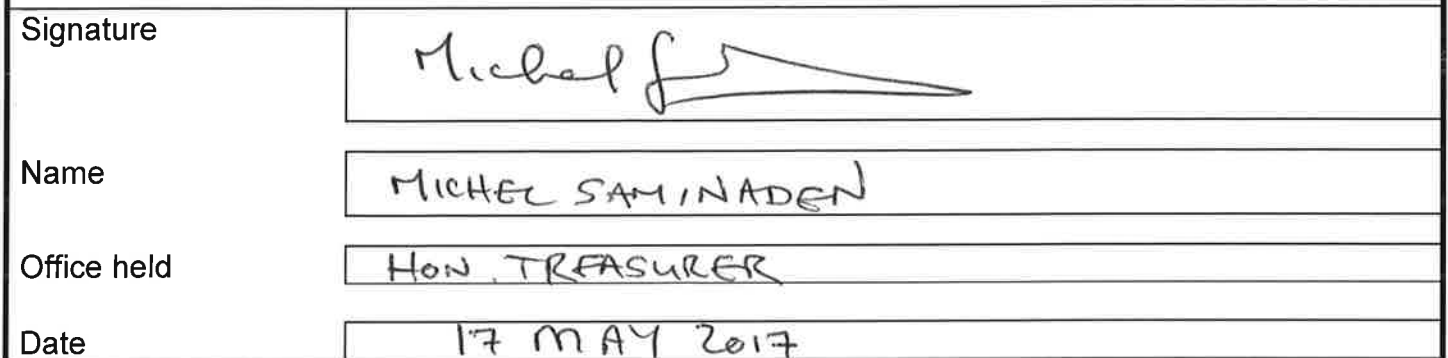 Signature
Michel S
Name
MICHEL SAMINADEN
Office held
HON. TREASURER
Date
17 MAY 2017